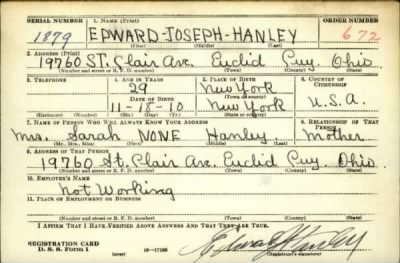 SERIAL NUMBER 1. NAME (Print) ORDER NUMBER
1879 EDWARD-JOSEPH-HANLEY 672
(First) (Middle) (Last)
2. ADDRESS (Print)
19760 ST. Clair Ave. Euclid Cuy. Ohio.
(Number and street or R. F. D. number) (Town) (County) (State)
3. TELEPHONE 4. AGE IN YEARS 5. PLACE OF BIRTH 6. COUNTRY OF CITIZENSHIP
29 New York
DATE OF BIRTH (Town or county)
11-18-10 New York U.S.A.
(Exchange) (Number) (Mo.) (Day) (Yr.) (State or country)
7. NAME OF PERSON WHO WILL ALWAYS KNOW YOUR ADDRESS 8. RELATIONSHIP OF THAT PERSON
Mrs. Sarah NONE Hanley. Mother
(Mr., Mrs., Miss) (First) (Middle) (Last)
9. ADDRESS OF THAT PERSON
19760 St. Clair Ave. Euclid Cuy. Ohio.
(Number and street or R. F. D. number) (Town) (County) (State)
10. EMPLOYER'S NAME
Not Working
11. PLACE OF EMPLOYMENT OR BUSINESS
(Number and street or R. F. D. number) (Town) (County) (State)
I AFFIRM THAT I HAVE VERIFIED ABOVE ANSWERS AND THAT THEY ARE TRUE.
REGISTRATION CARD
D. S. S. Form 1 Edward J Hanley
(Registrant's signature)